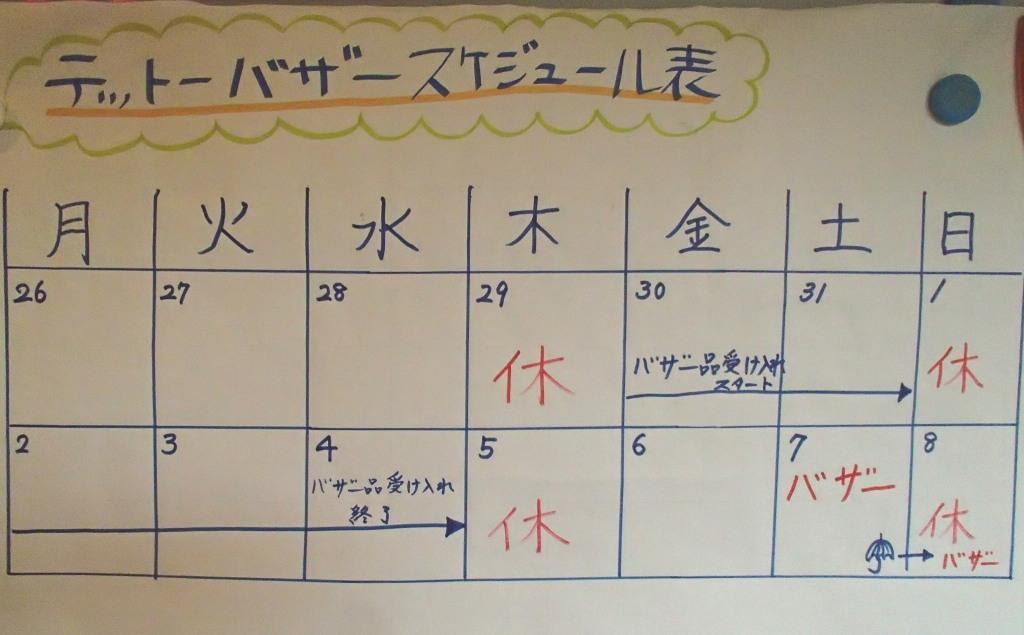 デットーバザースケジュール表
月 火 水 木 金 土 日
26 27 28 29 30 31 1
休 バザー品受け入れ 休
スタート
2 3 4 5 6 7 8
バザー品受け入れ バザー
終了 休 休
バザー